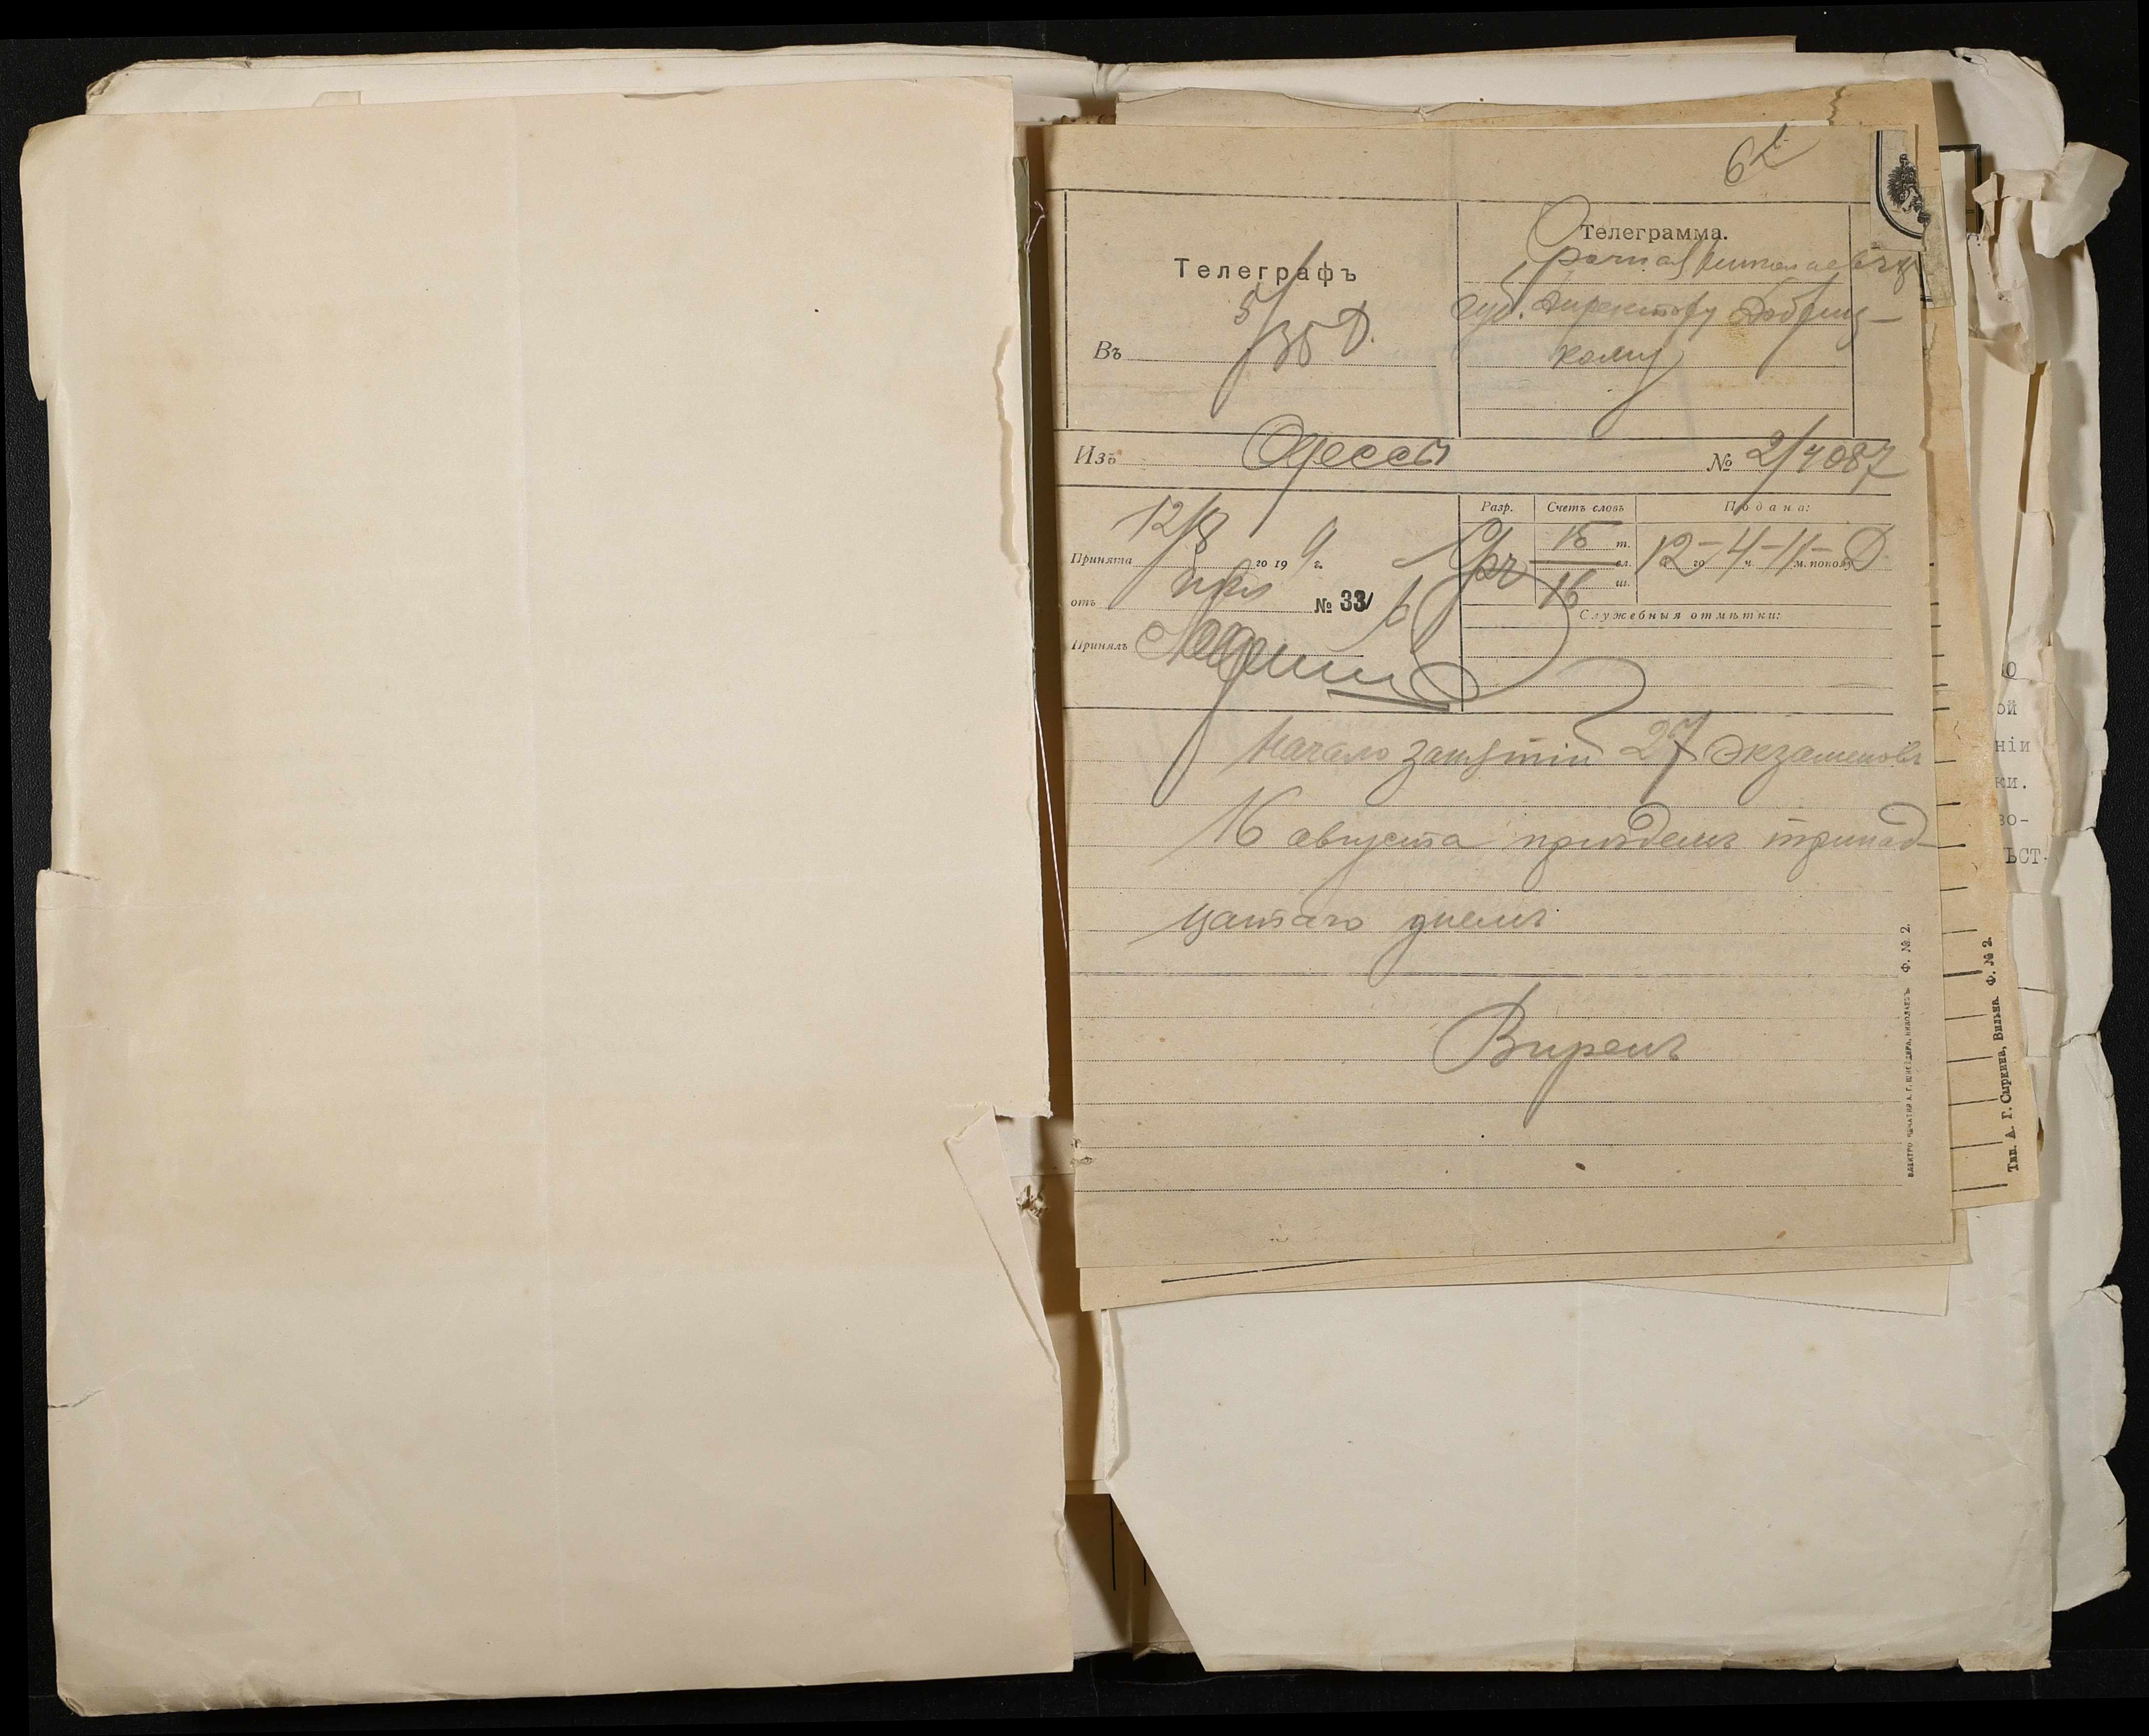 62
Телеграфъ
5/35 Д.
Въ
Телеграмма.
Срочная Николаевъ
директору Добриц-
кому
Изъ Одессы № 2/4087
Принята 12/8 го 19 г.
отъ № 33
Принялъ
Разр. Счетъ словъ Подана:
Ср 15 т. 12-го 4 ч. 11 м. полу Д
сл.
16 ш.
Служебныя отмѣтки:
Начало занятій 27 экзаменовъ
16 августа приѣдемъ тринад-
цатаго днемъ
Виренъ
ЭЛЕКТРО-ПЕЧАТНЯ А. Г. ШНЕЙДЕРА, НИКОЛАЕВЪ. Ф. № 2.
Тип. А. Г. Сыркина, Вильна. Ф. № 2.
ой
ніи
ки.
во-
ѣст.